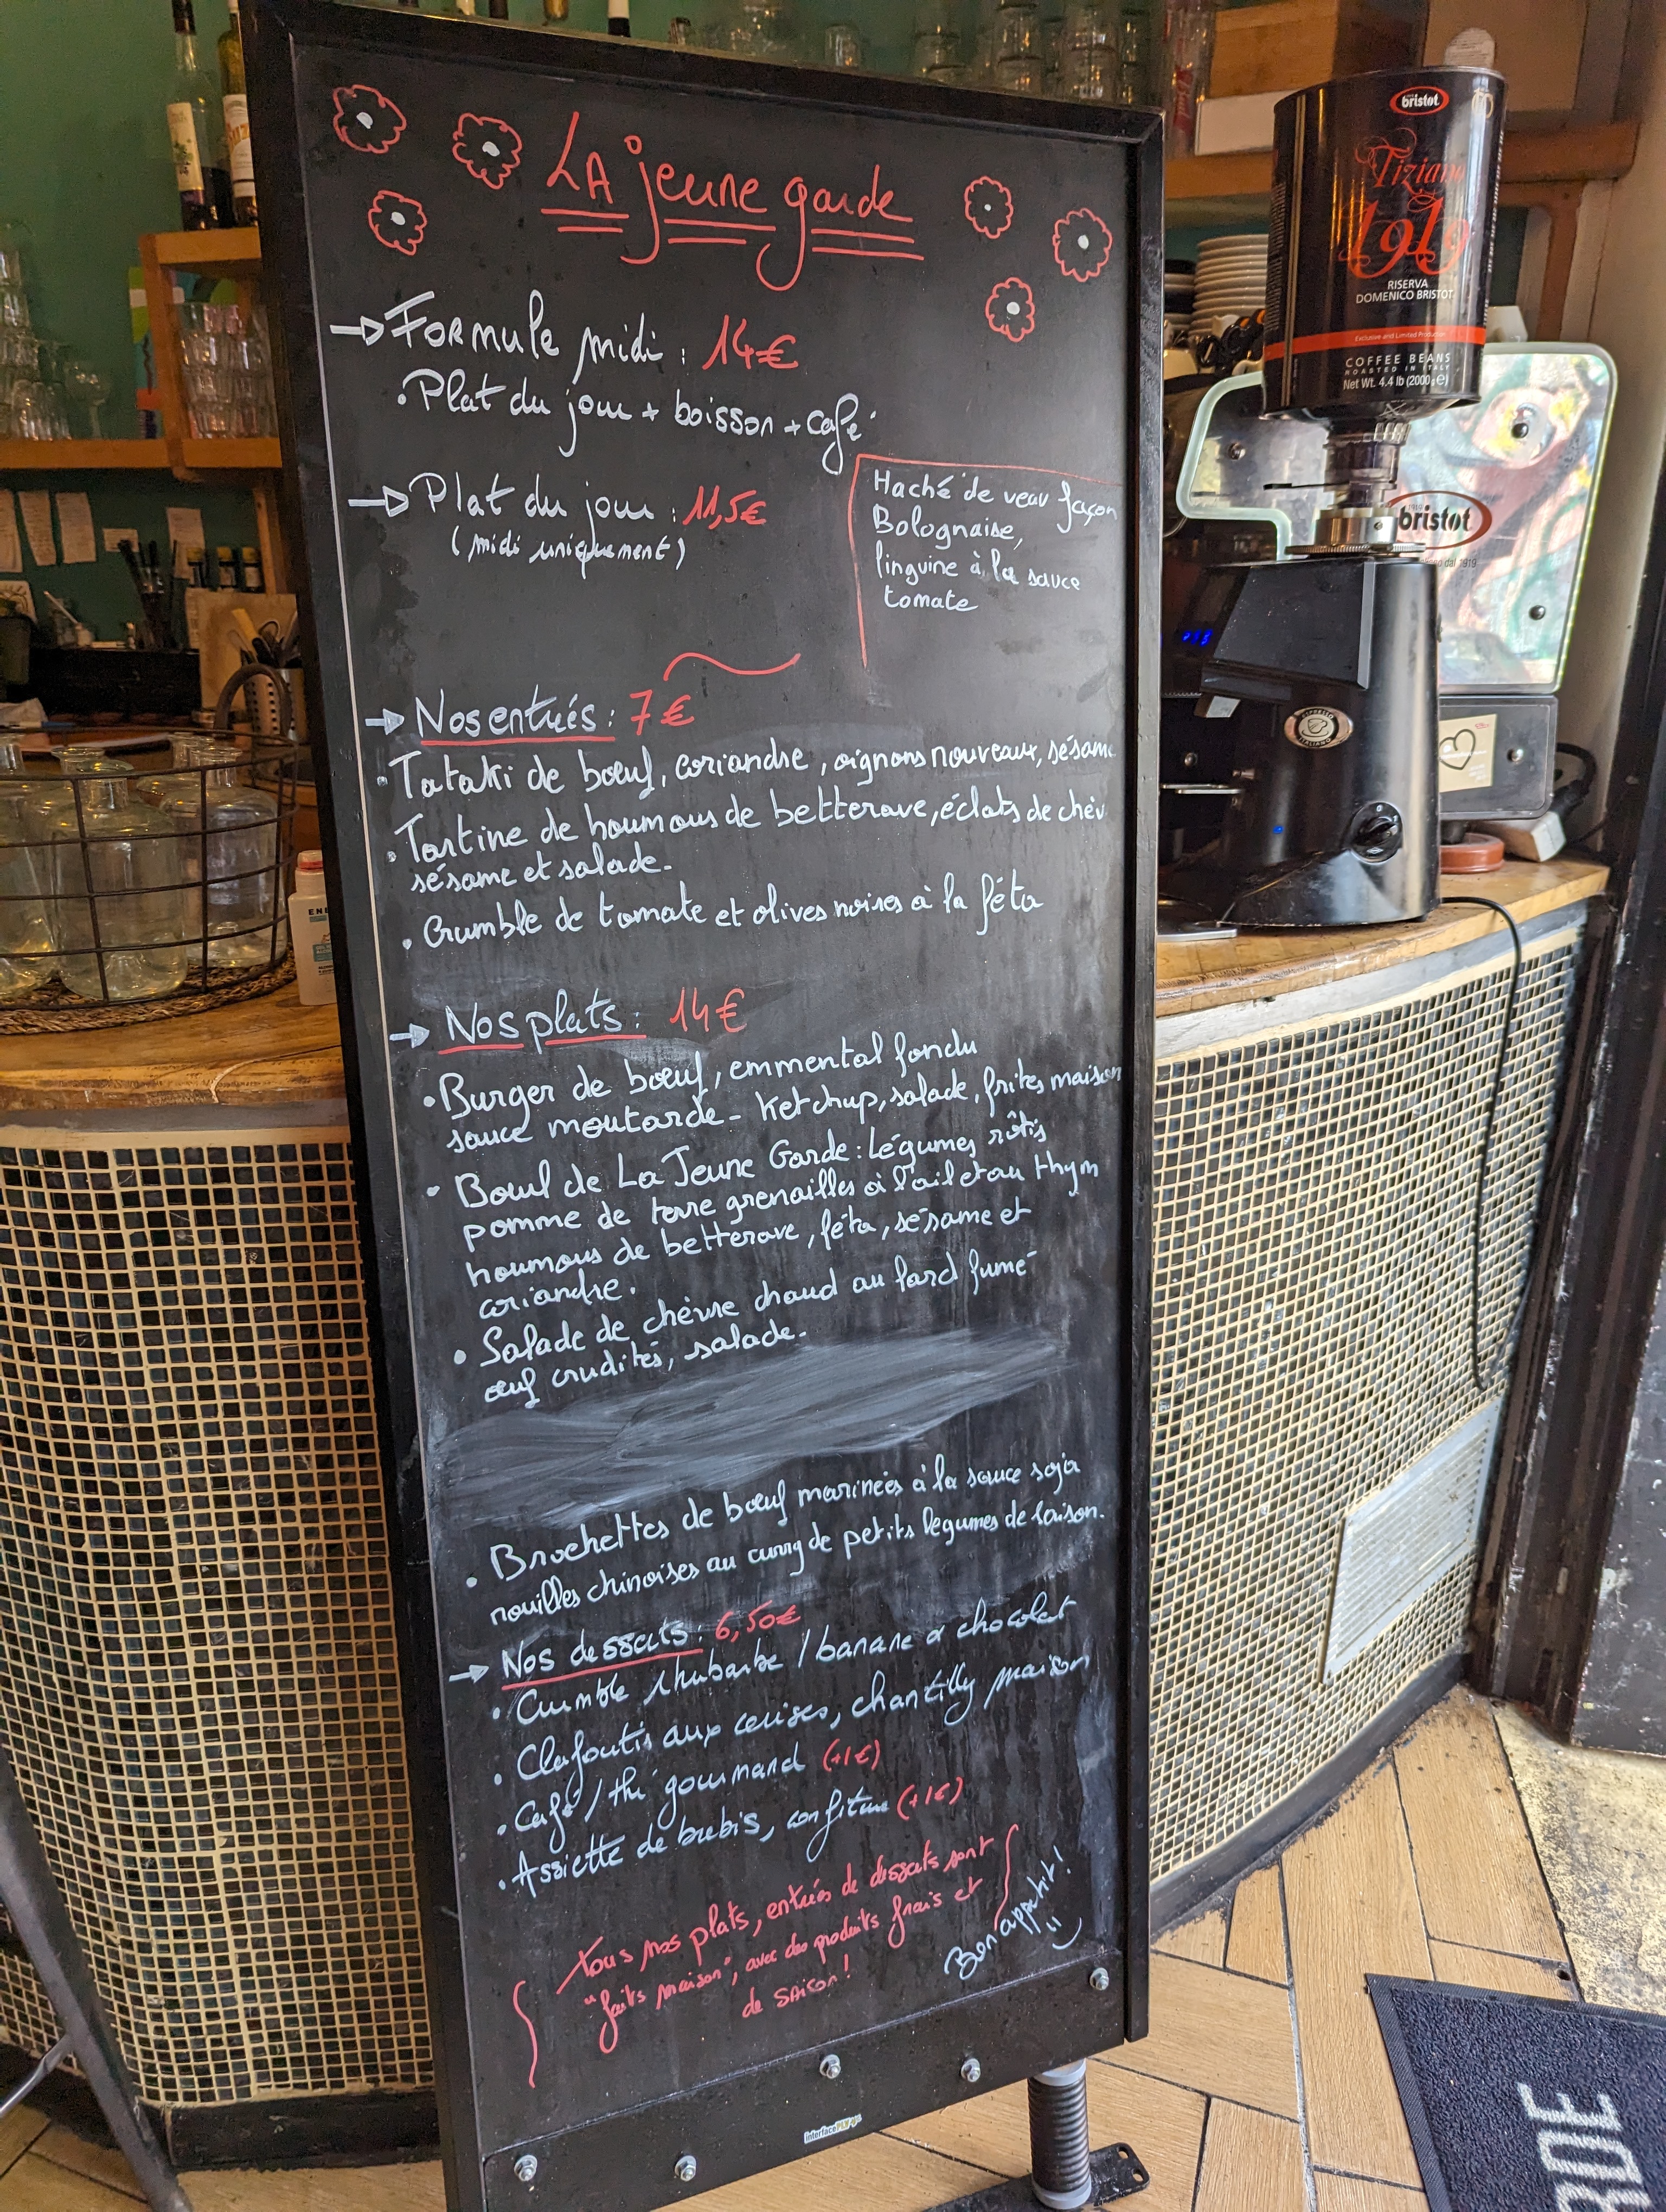 LA jeune garde
→ Formule midi : 14€
• Plat du jour + boisson + café
→ Plat du jour : 11,5€
(midi uniquement)
Haché de veau façon
Bolognaise,
linguine à la sauce
tomate
→ Nos entrées : 7€
• Tataki de bœuf, coriandre, oignons nouveaux, sésame
• Tartine de houmous de betterave, éclats de chèv
sésame et salade.
• Crumble de tomate et olives noires à la féta
→ Nos plats : 14€
• Burger de bœuf, emmental fondu
sauce moutarde - Ketchup, salade, frites maison
• Bowl de La Jeune Garde : Légumes rôtis
pomme de terre grenailles à l'ail et au thym
houmous de betterave, féta, sésame et
coriandre.
• Salade de chèvre chaud au lard fumé
œuf crudités, salade.
• Brochettes de bœuf marinées à la sauce soja
nouilles chinoises au curry de petits légumes de saison.
→ Nos desserts : 6,50€
• Crumble rhubarbe / banane & chocolat
• Clafoutis aux cerises, chantilly maison
• Café / thé gourmand (+1€)
• Assiette de brebis, confiture (+1€)
tous nos plats, entrées de desserts sont
"faits maison", avec des produits frais et
de saison !
Bon appétit !
interfacePLV
bristot
Tiziano
1919
RISERVA
DOMENICO BRISTOT
Exclusive and Limited Production
COFFEE BEANS
ROASTED IN ITALY
Net Wt. 4.4 lb (2000g e)
bristot
dal 1919
ESPRESSO
ITALIANO
RDE